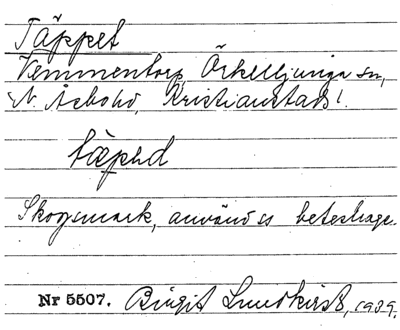 Täppet
Vemmentorp, Örkelljunga sn,
N. Åsbohd, Kristianstads l.
täpəd
Skogsmark, använd ss beteshage.
Nr 5507. Birgit Lundkvist, 1939.